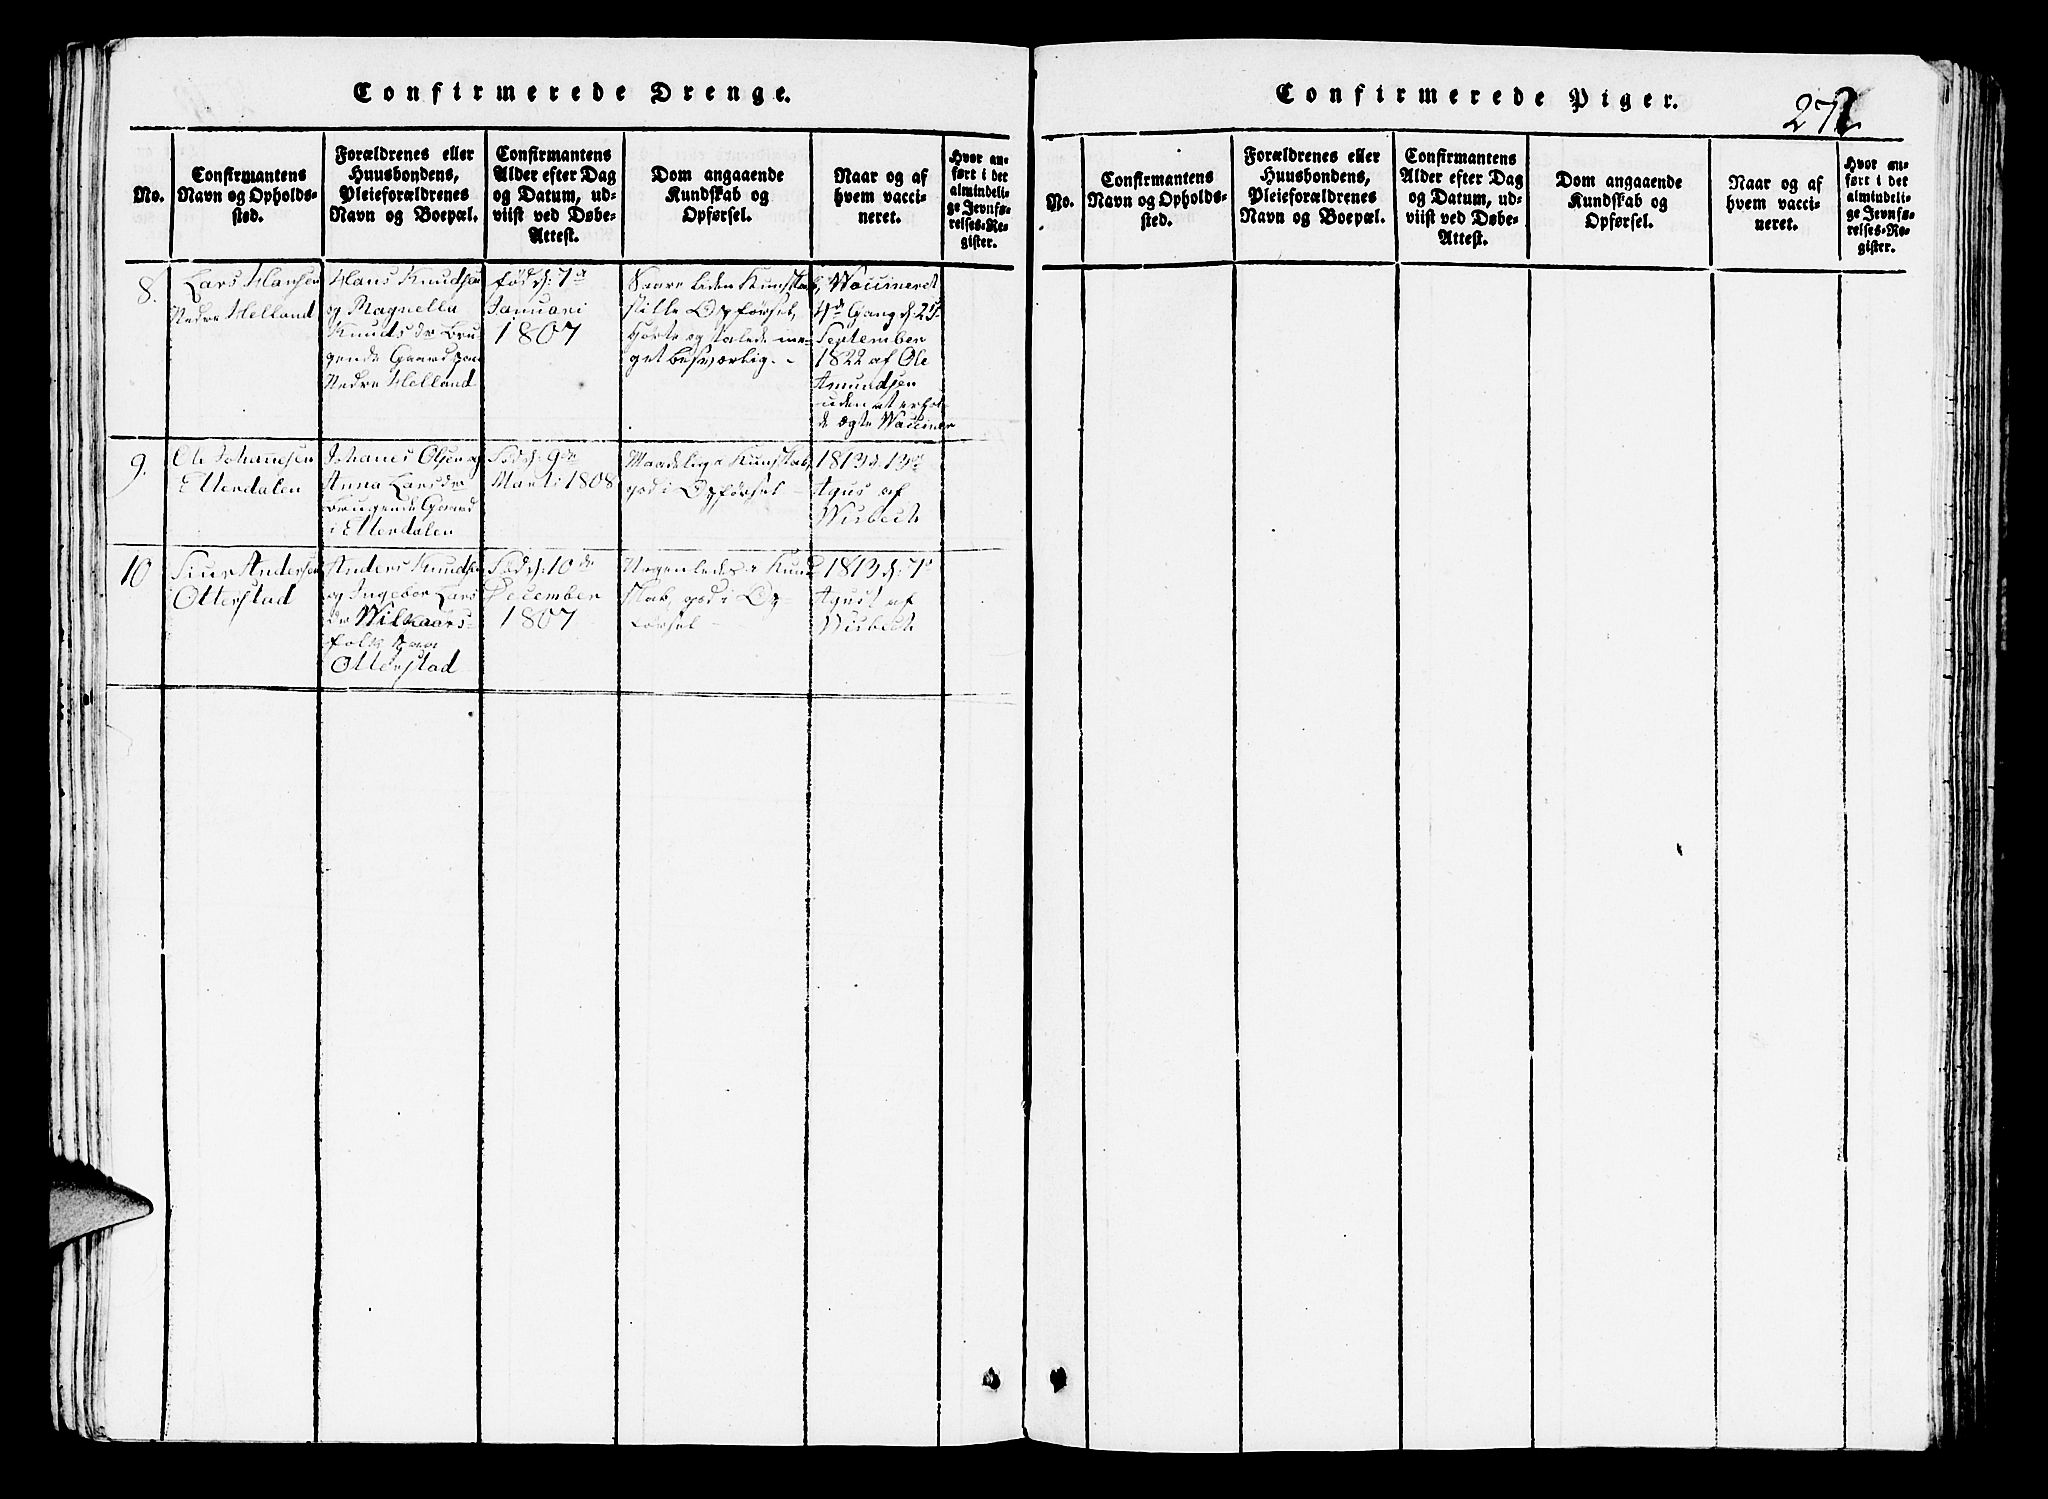 Confirmerede Drenge.
No.
Confirmantens
Navn og Opholds-
sted.
Forældrenes eller
Huusbondens,
Pleieforældrenes
Navn og Boepæl.
Confirmantens
Alder efter Dag
og Datum, ud-
viist ved Døbe-
Attest.
Dom angaaende
Kundskab og
Opførsel.
Naar og af
hvem vacci-
neret.
Hvor an-
ført i det
almindeli-
ge Jevnfø-
relses-Re-
gister.
8.
Lars Hansen
Nedre Helland
Hans Knudsen
og Magnella
Knuds dr Bru-
gende Gaard paa
Nedre Helland
fød d: 7de
Januari
1807
Saare liden Kunskab,
stille Opførsel,
hørte og talede me-
get besværlig. -
Waccineret
4de Gang d: 25
September
1822 af Ole
Amundsen
uden at erhol-
de ægte Waccíner
9.
Ole Johannesen
Etterdalen
Johanes Olsen og
Anna Larsdr
Brugende Gaard
i Etterdalen
Fød d: 9de
Marti 1808
Maadelig Kunskab,
god i Opførsel
1813 d: 13de
Agus af
Wisbech
10
Siur Andersen
Otterstad
Anders Knudsen
og Ingebor Lars
dr Wilkaars-
folk paa
Otterstad
Fød d: 10de
December
1807
Nogenledes Kund
skab, god i Op-
førsel
1813 d: 7de
Agust af
Wisbech
Confirmerede Piger.
272
No.
Confirmantens
Navn og Opholds-
sted.
Forældrenes eller
Huusbondens,
Pleieforældrenes
Navn og Boepæl.
Confirmantens
Alder efter Dag
og Datum, ud-
viist ved Døbe-
Attest.
Dom angaaende
Kundskab og
Opførsel.
Naar og af
hvem vacci-
neret.
Hvor an-
ført i det
almindeli-
ge Jevnfø-
relses-Re-
gister.